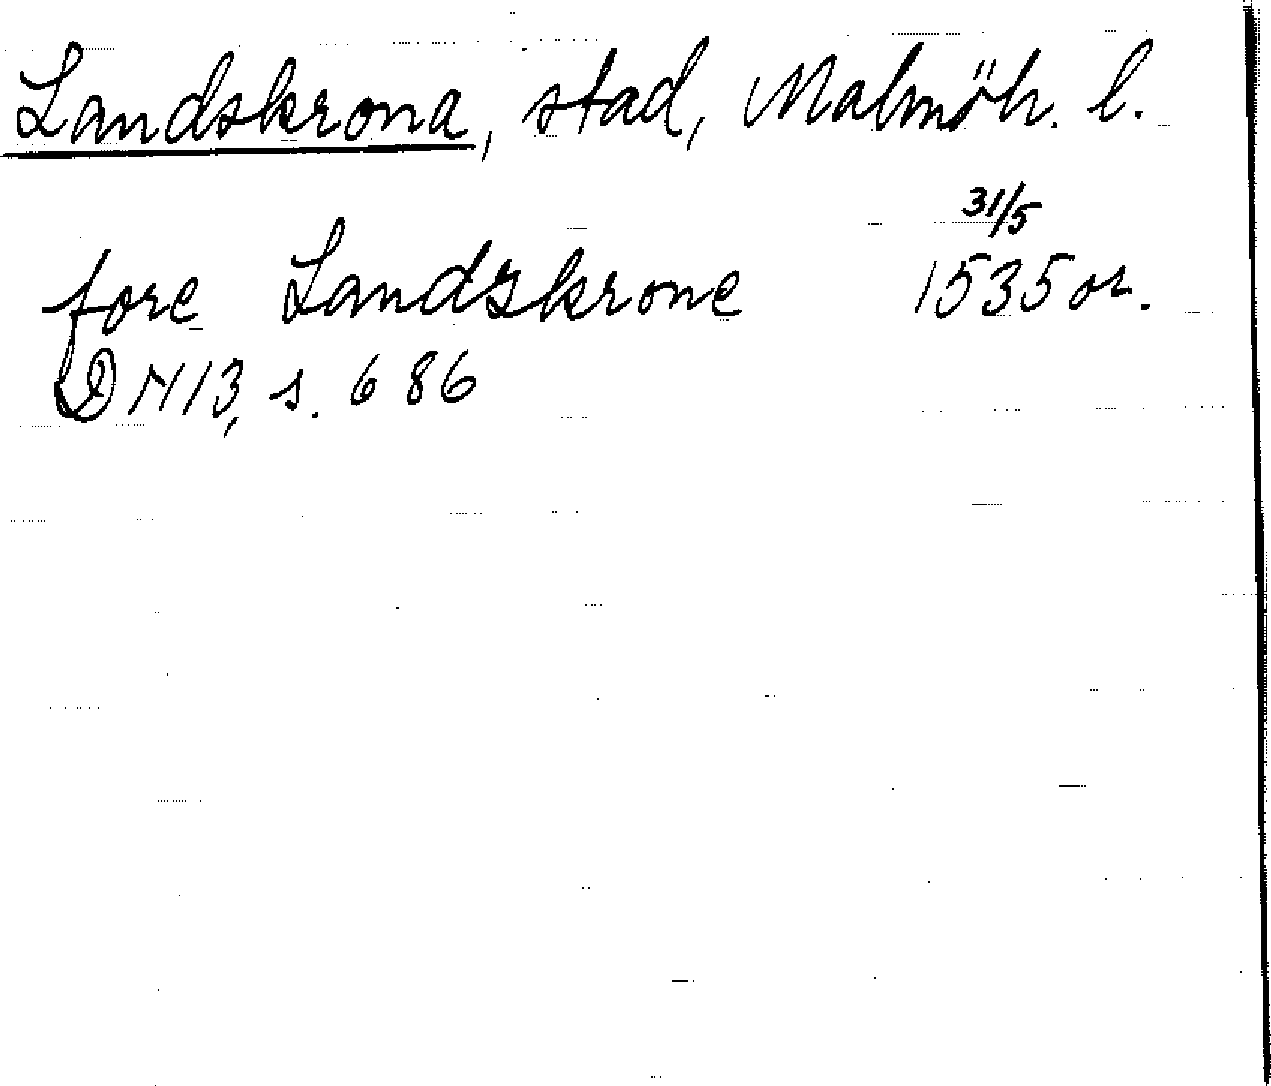 Landskrona, stad, Malmöh. l.
fore Landzkrone 31/5 1535 or.
DN 13, s. 686